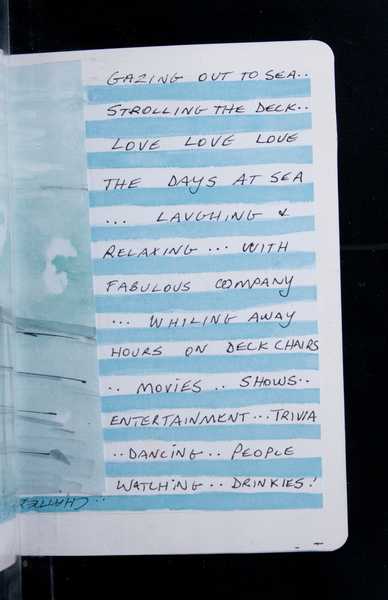 GAZING OUT TO SEA..
STROLLING THE DECK..
LOVE LOVE LOVE
THE DAYS AT SEA
... LAUGHING &
RELAXING ... WITH
FABULOUS COMPANY
... WHILING AWAY
HOURS ON DECK CHAIRS
.. MOVIES .. SHOWS..
ENTERTAINMENT... TRIVIA
..DANCING.. PEOPLE
WATCHING .. DRINKIES!